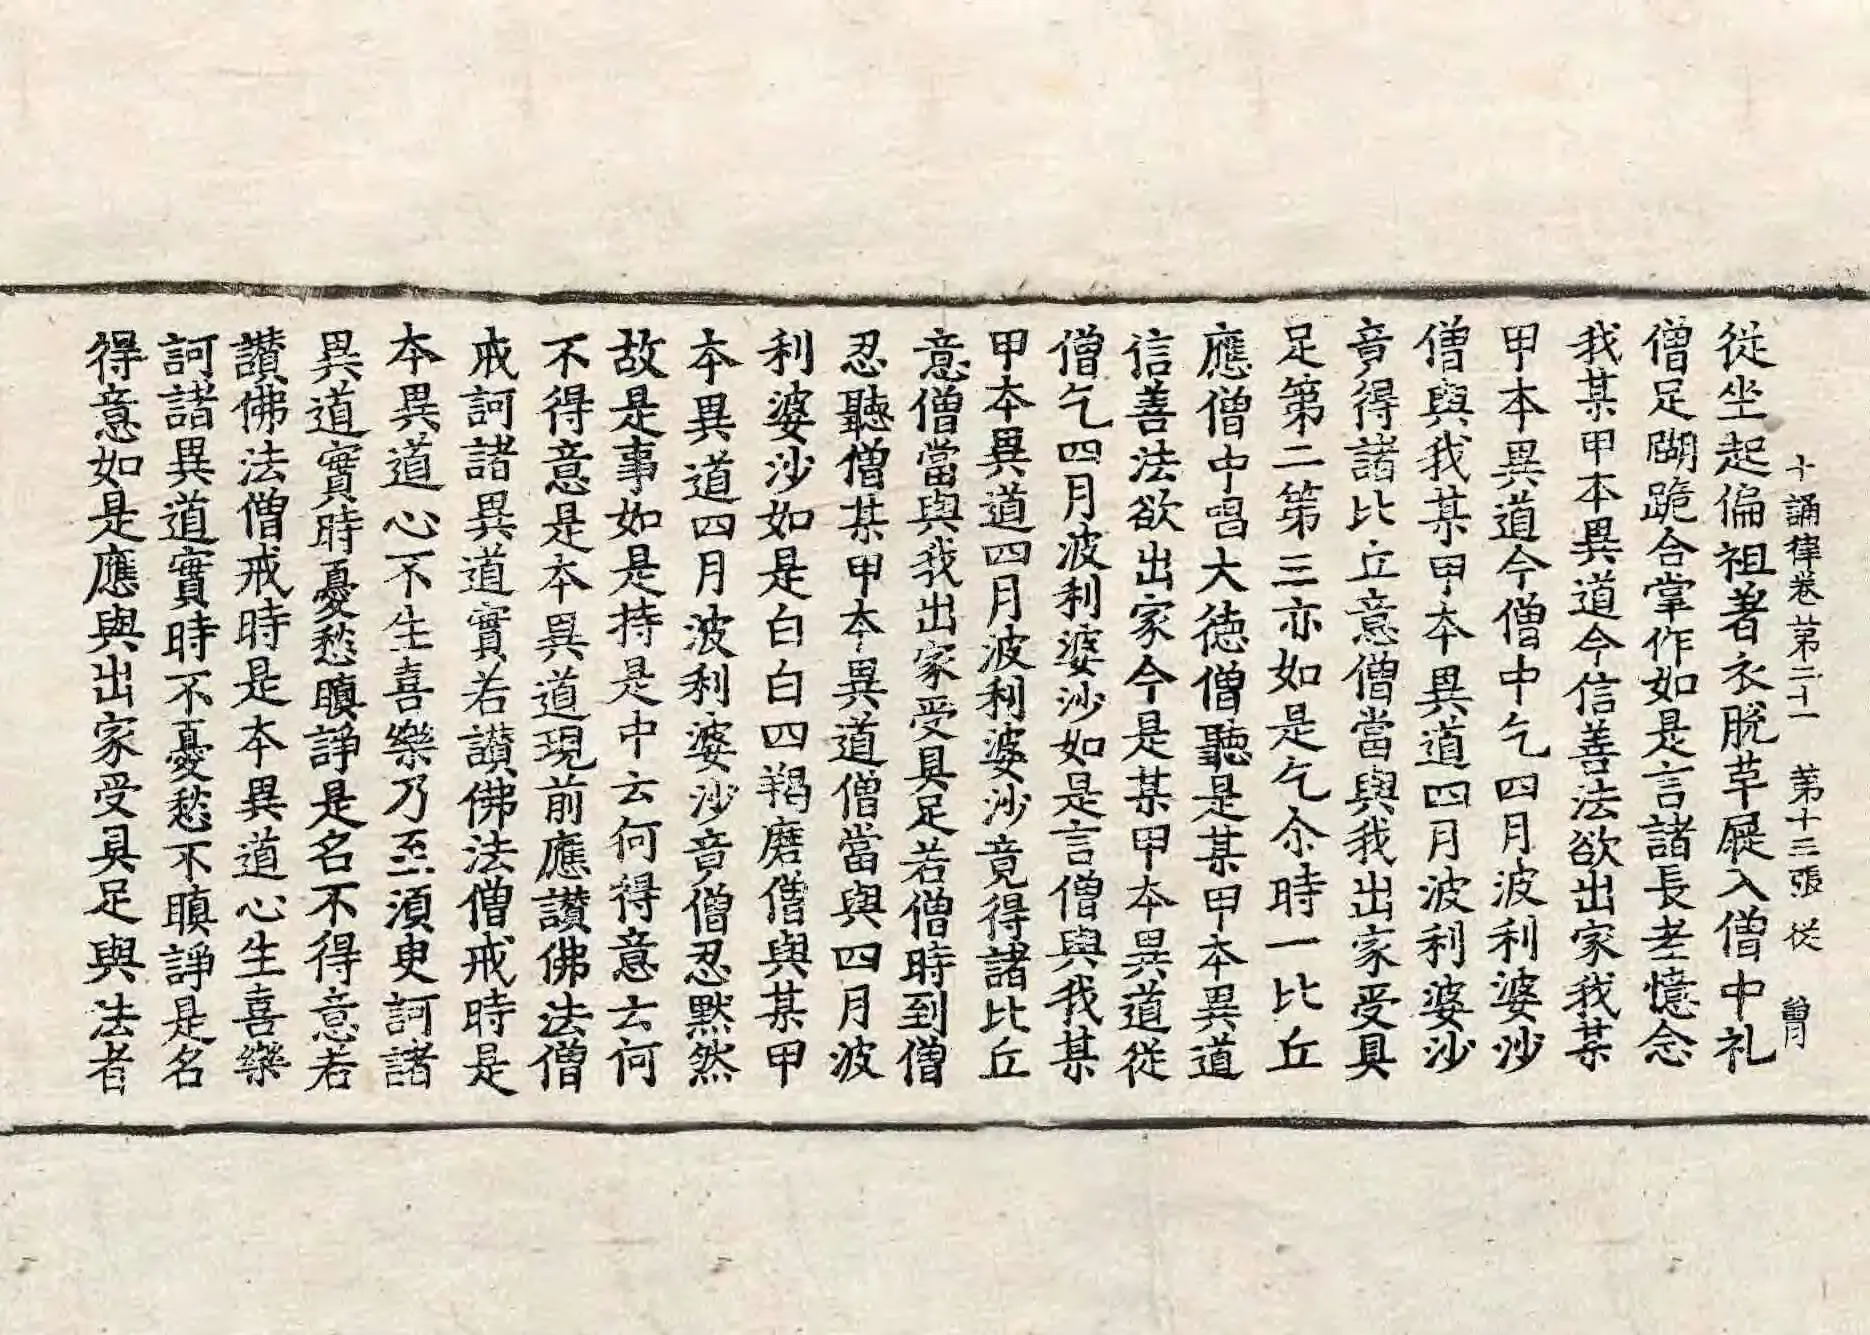 十誦律卷第二十一 第十三張 從
從坐起偏袒著衣脫革屣入僧中礼
僧足䠒跪合掌作如是言諸長老憶念
我某甲本異道今信善法欲出家我某
甲本異道今僧中乞四月波利婆沙
僧與我某甲本異道四月波利婆沙
竟得諸比丘意僧當與我出家受具
足第二第三亦如是乞尒時一比丘
應僧中唱大德僧聽是某甲本異道
信善法欲出家今是某甲本異道從
僧乞四月波利婆沙如是言僧與我某
甲本異道四月波利婆沙竟得諸比丘
意僧當與我出家受具足若僧時到僧
忍聽僧某甲本異道僧當與四月波
利婆沙如是白白四羯磨僧與某甲
本異道四月波利婆沙竟僧忍默然
故是事如是持是中云何得意云何
不得意是本異道現前應讃佛法僧
戒訶諸異道實若讃佛法僧戒時是
本異道心不生喜樂乃至須臾訶諸
異道實時憂愁瞋諍是名不得意若
讃佛法僧戒時是本異道心生喜樂
訶諸異道實時不憂愁不瞋諍是名
得意如是應與出家受具足與法者